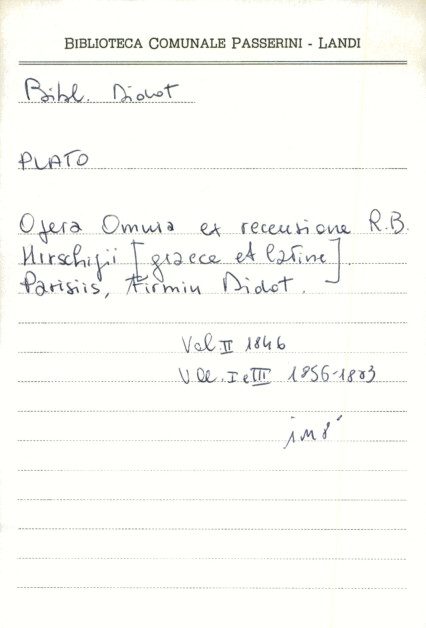 BIBLIOTECA COMUNALE PASSERINI - LANDI
Bibl. Didot
PLATO
Opera Omnia ex recensione R.B.
Hirschigii [graece et latine].
Parisiis, Firmin Didot.
Vol. II 1846
Voll. I e III 1856-1873
in 8°